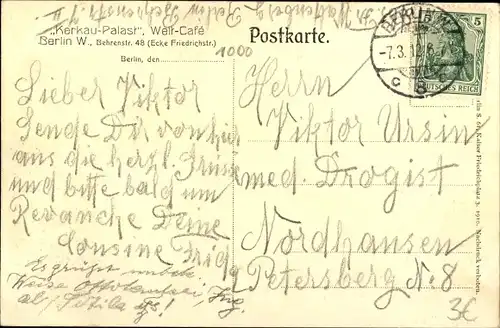 "Kerkau-Palast", Welt-Café
Berlin W., Behrenstr. 48 (Ecke Friedrichstr.)
Berlin, den
1000
Postkarte.
BERLIN W
-7.3.12.6-
C
8
5
DEUTSCHES REICH
Lieber Viktor
Sende Dir von hier
aus die herzl. Grüsse
und bitte bald um
Revanche Deine
Cousine Frida
Es grüßt unbek.
Herrn
Viktor Ursin
med. Drogist
Nordhausen
Petersberg No. 8
3€